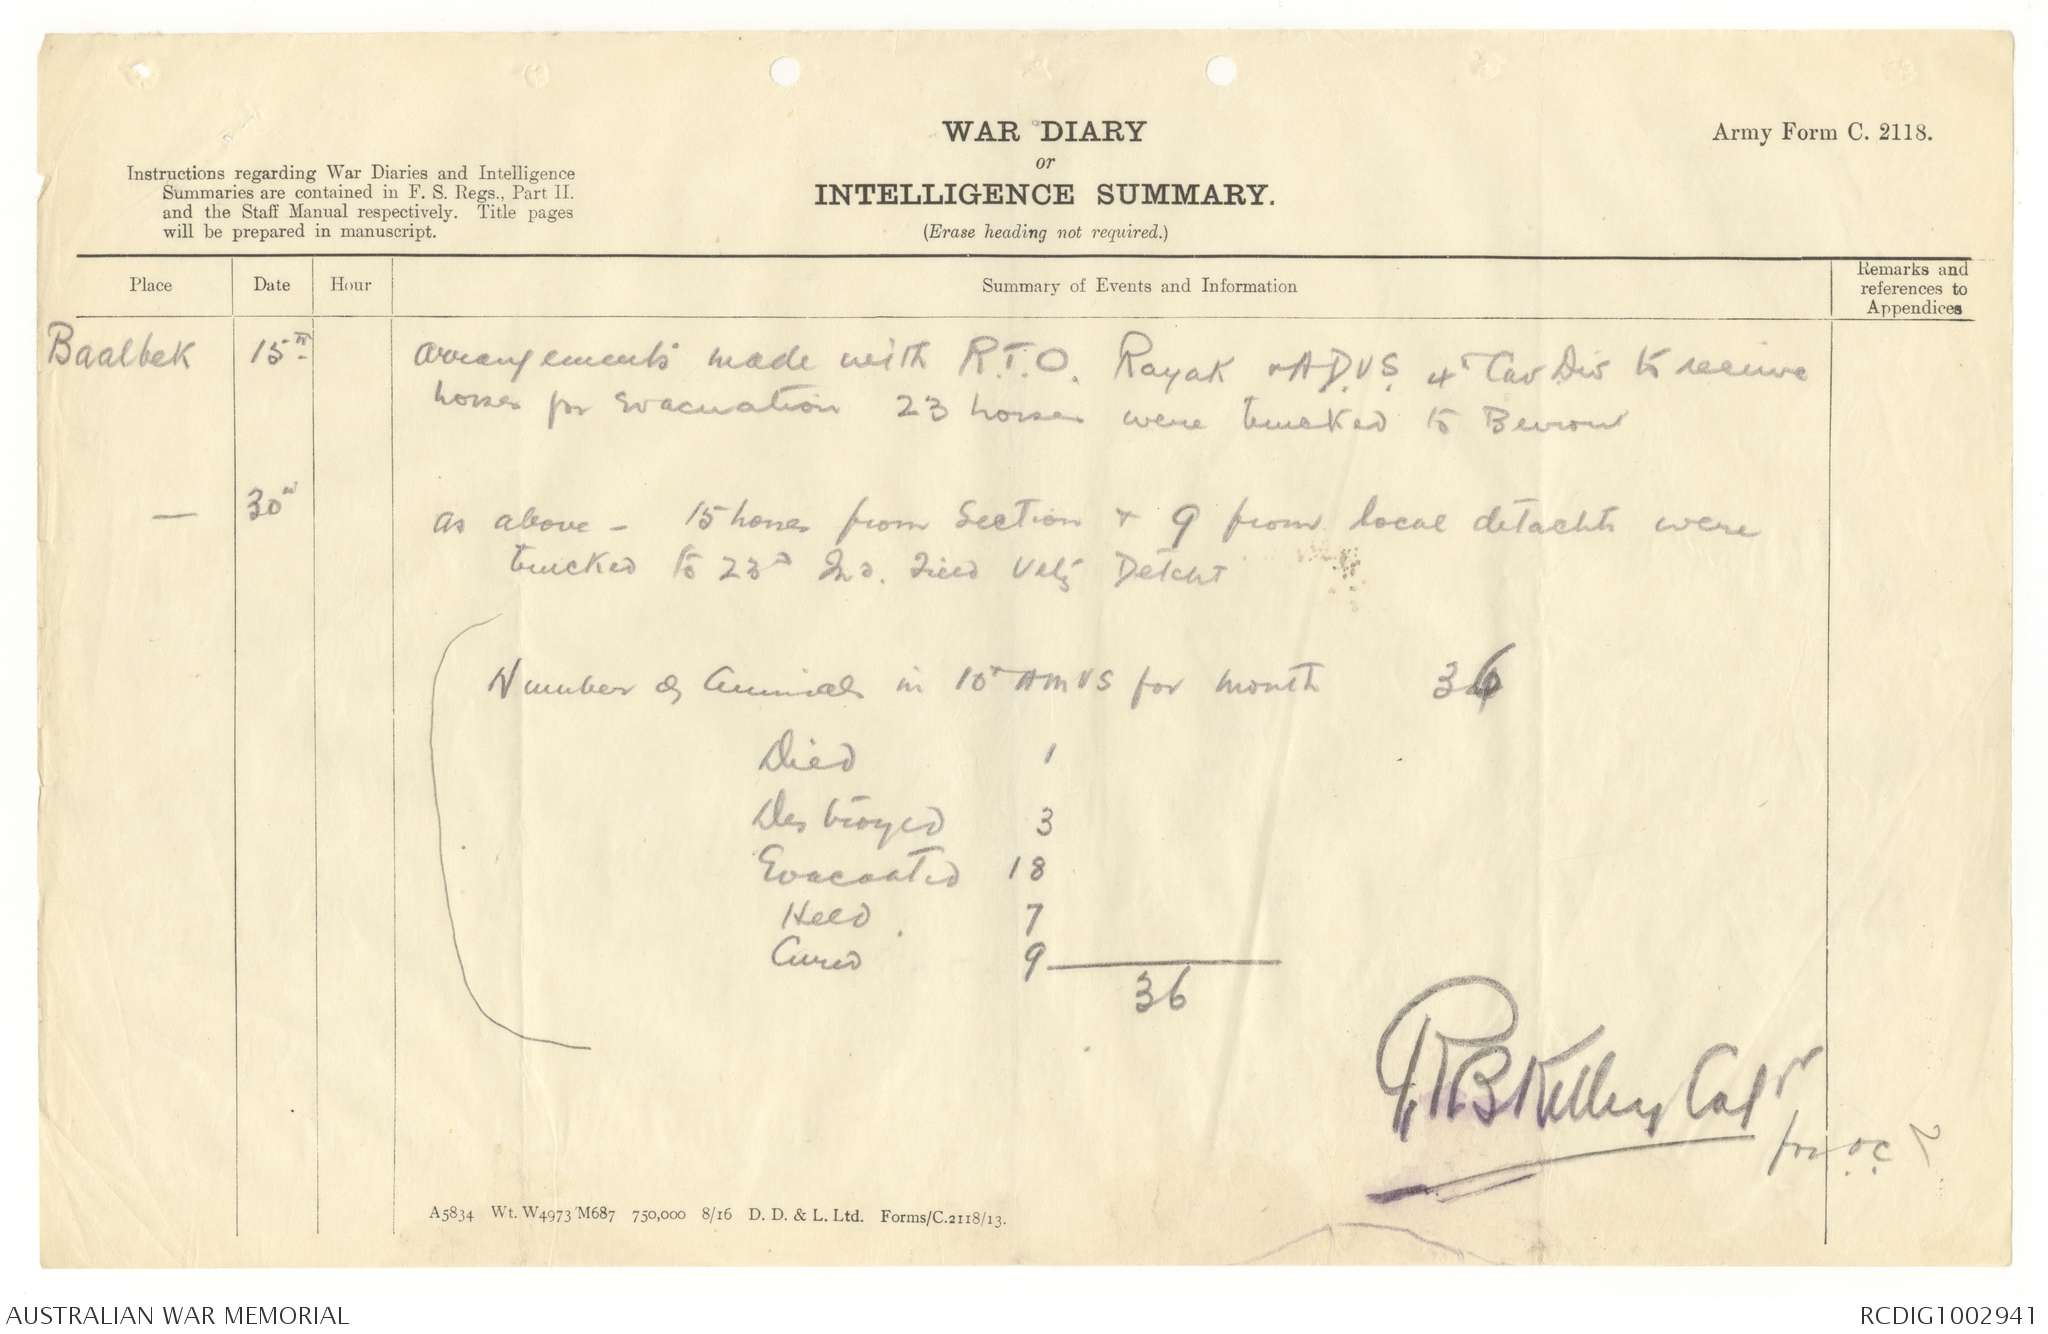 WAR DIARY
or
INTELLIGENCE SUMMARY.
(Erase heading not required.)
Army Form C. 2118.
Instructions regarding War Diaries and Intelligence
Summaries are contained in F. S. Regs., Part II.
and the Staff Manual respectively. Title pages
will be prepared in manuscript.
Place Date Hour Summary of Events and Information Remarks and references to Appendices
Baalbek 15th arrangements made with R.T.O. Rayak & A.D.V.S. 4th Cav Div to receive
horses for evacuation 23 horses were trucked to Beirout
— 30th as above - 15 horses from Section & 9 from local detachts were
trucked to 23rd Ind. Field Vety Detcht
Number of Animals in 10th AMVS for month 36
Died 1
Destroyed 3
Evacuated 18
Held 7
Cured 9
36
RB Kelley Capt
for O.C
A5834 Wt. W4973/M687 750,000 8/16 D. D. & L. Ltd. Forms/C.2118/13.
AUSTRALIAN WAR MEMORIAL
RCDIG1002941